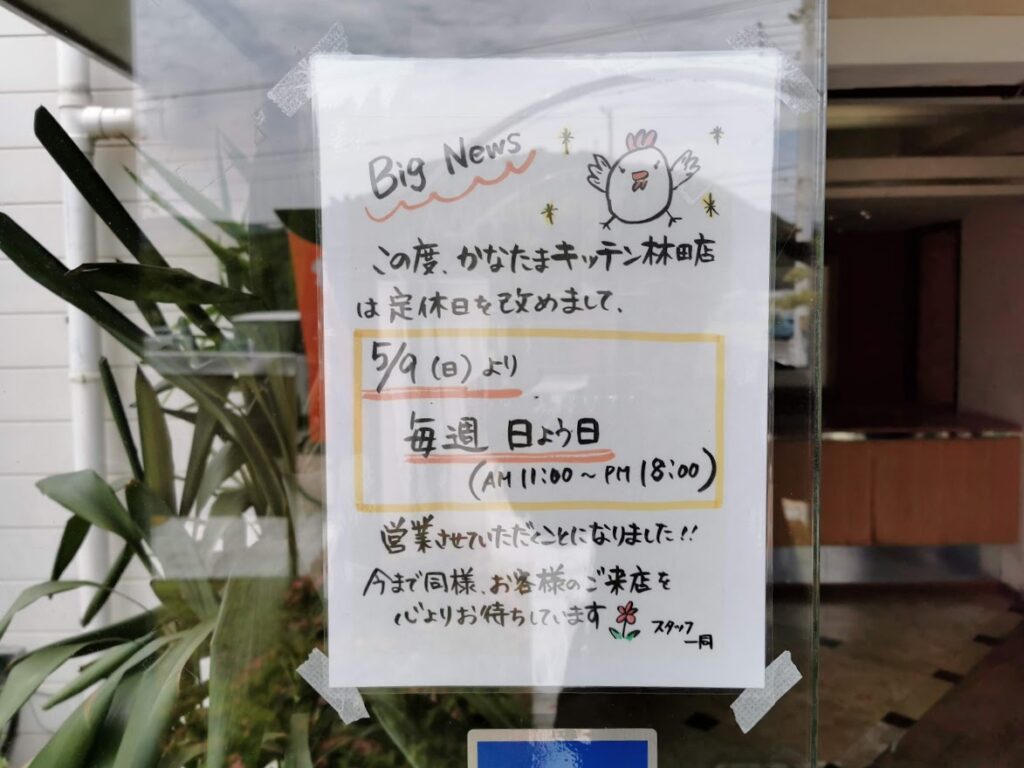 Big News
この度、かなたまキッチン林田店
は定休日を改めまして、
5/9(日)より
毎週 日よう日
(AM 11:00〜PM 18:00)
営業させていただくことになりました!!
今まで同様、お客様のご来店を
心よりお待ちしています
スタッフ
一同